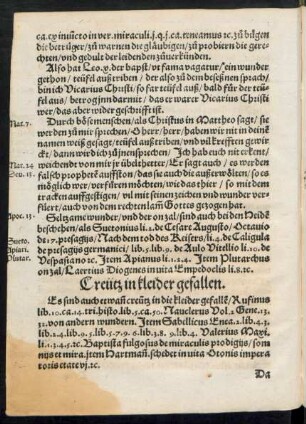 ca.cx inuẽto in ver. miraculi.j.q.j.ca.teneamus ꝛc. zů bilgen
die betrüger/zů warnen die gläubigen/zů probiern die gerechten/
vnd gedult der leidenden zů erkünden.
Also hat Leo.x. der bapst/vt fama vagatur/ein wunder
gethon/teüfel außtriben/der also zů dem beseßnen sprach/
bin ich Vicarius Christi/so far teüfel auß/bald für der teüfel
aus/betrog jnn darmit/das er warer Vicarius Christi
wer/das aber wider geschrifft ist.
Mat. 7. Durch bösemenschen/als Christus in Mattheo sagt/sie
werden zů mir sprechen/O herr/herr/haben wir nit in deinẽ
namen weiß gesagt/teüfel außtriben/vnd vil krefften gewirckt/
dann wird ich zů jnen sprechen/Ich hab euch nit erkent/
Mat. 24 weichend er von mir jr übelthetter/Er sagt auch/es werden
Deu. 13. falsch prophetẽ auffston/das sie auch die außerwölten/so es
möglich wer/verfüren möchten/wie das thier/so mit dem
tracken auffgestigen/vil mit seinen zeichen vnd wunder verfüert/
auch von den rechten lam Gottes gezogen hat.
Apoc. 13. Seltzame wunder/vnd der on zal/sind auch bei den Heidẽ
beschehen/als Suetonius li.2. de Cesare Augusto/Octauio
Sueto. di.17. presagijs/Nach dem tod des Keisers/li.4. de Caligula
Apiani. de presagijs germanici/lib.5. lib.9. de Aulo Vitellio li.10. de
Plutar. Vespasiano ꝛc. Item Apianus li.1.2.4. Item Plutarchus
on zal/Laertius Diogenes in vita Empedoclis li.8. ꝛc.
Creütz in kleider gefallen.
Es sind auch etwañ creütz in die kleider gefallẽ/Ruffinus
lib.10. ca.14. tri. histo. lib.5. ca.50. Nauclerus Vol.2. Gene.13.
31. von andern wundern. Item Sabellicus Enea.1. lib.4.3.
lib.2.4. lib.8.5. lib.7.9.6. lib.3.8.9. lib.4. Valerius Maxi.
li.1.3.4.5. ꝛc. Baptista fulgosus de miraculis prodigijs/somnijs
et mira. item Hartmañ. schedel in vita Otonis imperatoris
etate vj. ꝛc.
Da